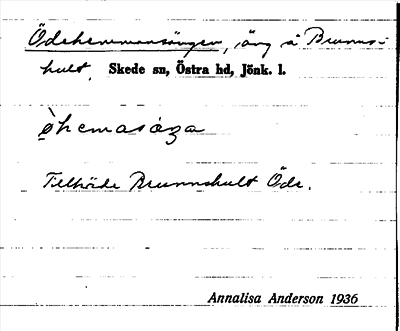 Ödehemmansängen, äng å Brunns-
hult, Skede sn, Östra hd, Jönk. l.
ø̀hemasáza
Tillhörde Brunnshult Öde.
Annalisa Anderson 1936